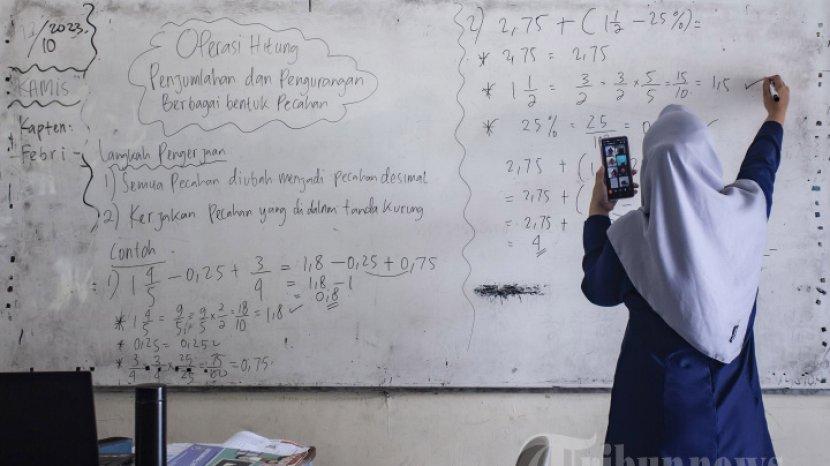 12/10 2023
KAMIS
Kapten:
Febri
Operasi Hitung
Penjumlahan dan Pengurangan
Berbagai bentuk Pecahan
Langkah Pengerjaan
1) Semua Pecahan diubah menjadi pecahan desimal
2) Kerjakan Pecahan yang di dalam tanda kurung
Contoh
1) 1 4/5 - 0,25 + 3/4 = 1,8 - 0,25 + 0,75
= 1,8 - 1
= 0,8
* 1 4/5 = 9/5 = 9/5 × 2/2 = 18/10 = 1,8 ✓
* 0,25 = 0,25 ✓
* 3/4 = 3/4 × 25/25 = 75/100 = 0,75
2) 2,75 + (1 1/2 - 25%) =
* 2,75 = 2,75
* 1 1/2 = 3/2 = 3/2 × 5/5 = 15/10 = 1,5 ✓
* 25% = 25
2,75 + (1
= 2,75 + (
= 2,75 +
= 4
Tribunnews